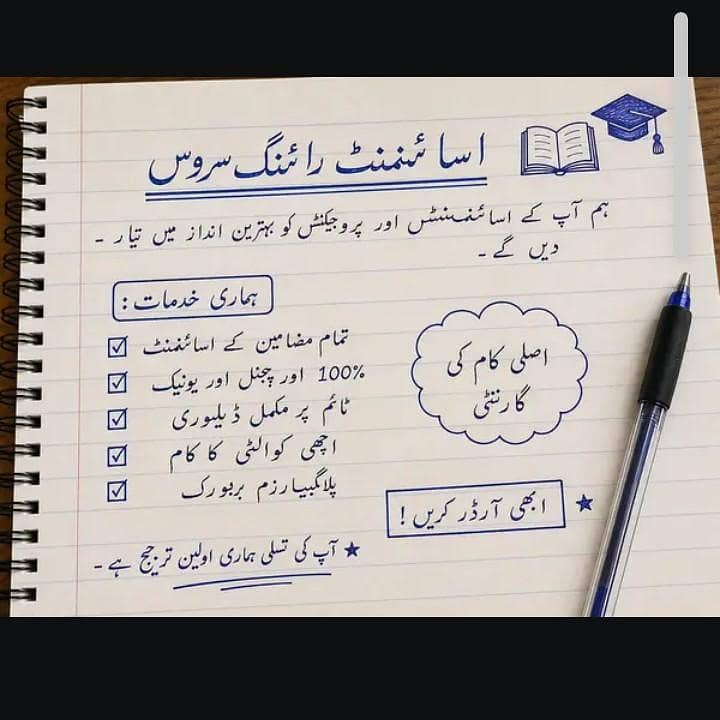 اسائنمنٹ رائٹنگ سروس
ہم آپ کے اسائنمنٹس اور پروجیکٹس کو بہترین انداز میں تیار ۔
دیں گے ۔
ہماری خدمات :
تمام مضامین کے اسائنمنٹ
100% اورجنل اور یونیک
ٹائم پر مکمل ڈیلیوری
اچھی کوالٹی کا کام
اصلی کام کی
گارنٹی
ابھی آرڈر کریں !
آپ کی تسلی ہماری اولین ترجیح ہے ۔